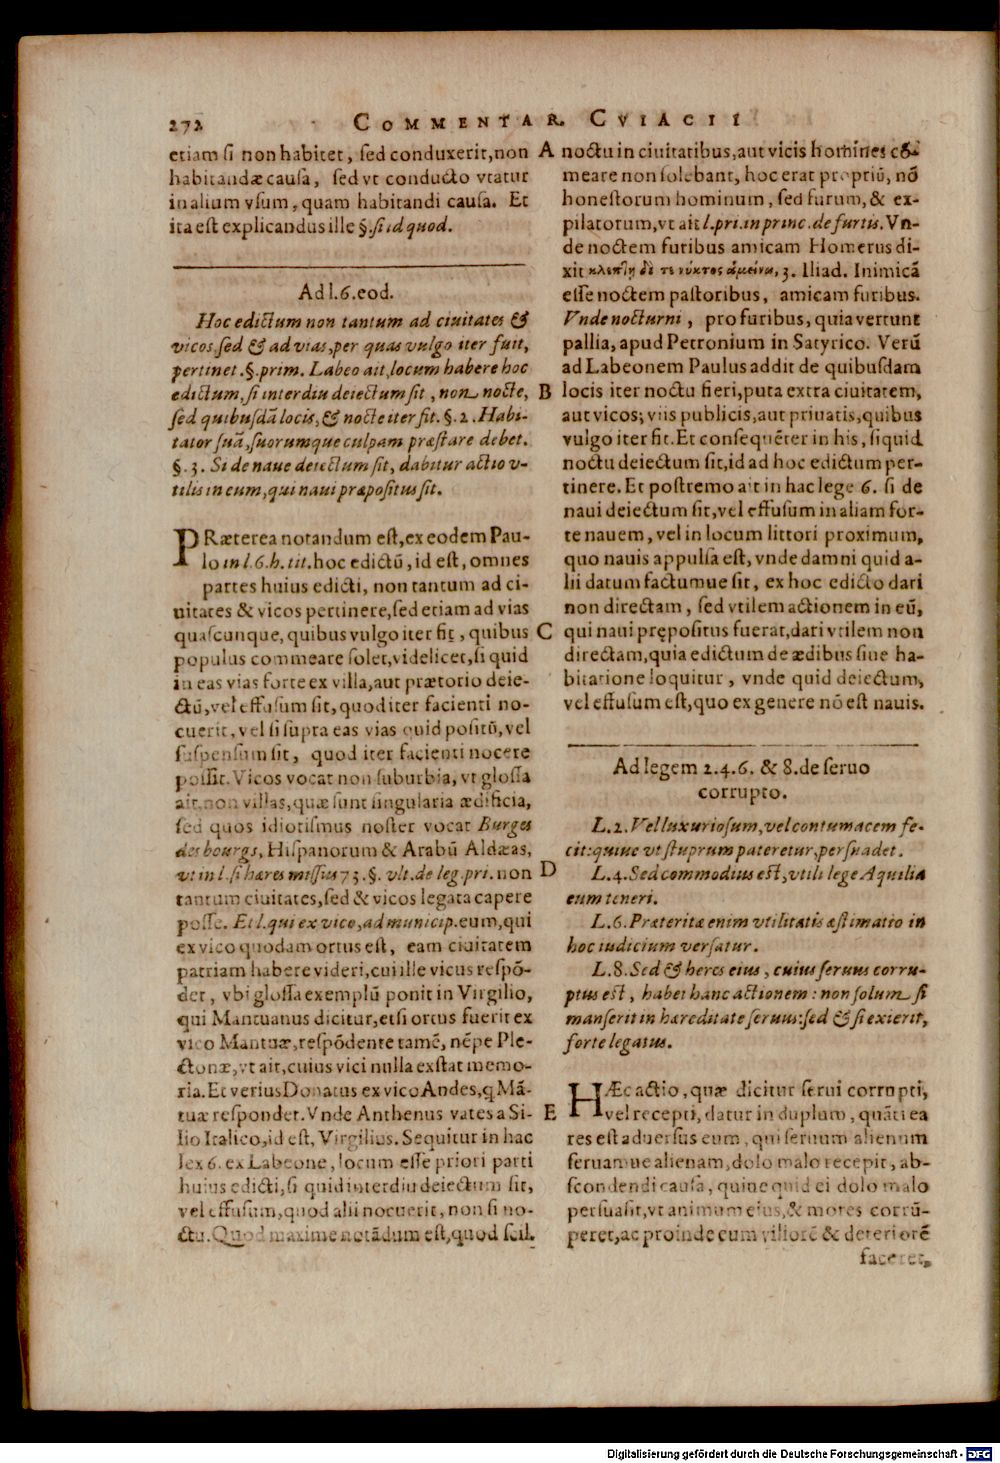 272
COMMENTAR. CVIACII
etiam si non habitet, sed conduxerit, non
habitandæ causa, sed vt conducto vtatur
in alium vsum, quam habitandi causa. Et
ita est explicandus ille §. si id quod.
Ad l. 6. eod.
Hoc edictum non tantum ad ciuitates &
vicos, sed & ad vias, per quas vulgo iter fuit,
pertinet. §. prim. Labeo ait, locum habere hoc
edictum, si interdiu deiectum sit, non nocte,
sed quibusdã locis, & nocte iter fit. §. 2. Habi-
tator suã, suorumque culpam præstare debet.
§. 3. Si de naue deiectum sit, dabitur actio v-
tilis in eum, qui naui præpositus sit.
PRæterea notandum est, ex eodem Pau-
lo in l. 6. h. tit. hoc edictũ, id est, omnes
partes huius edicti, non tantum ad ci-
uitates & vicos pertinere, sed etiam ad vias
quascunque, quibus vulgo iter fit, quibus
populus commeare solet, videlicet, si quid
in eas vias forte ex villa, aut prætorio deie-
ctũ, vel effusum sit, quod iter facienti no-
cuerit, vel si supra eas vias quid positũ, vel
suspensum sit, quod iter facienti nocere
possit. Vicos vocat non suburbia, vt glossa
ait, non villas, quæ sunt singularia ædificia,
sed quos idiotismus noster vocat Burges
des bourgs, Hispanorum & Arabũ Aldæas,
vt in l. si hæres missus 73. §. vlt. de leg. pri. non
tantum ciuitates, sed & vicos legata capere
posse. Et l. qui ex vico, ad municip. eum, qui
ex vico quodam ortus est, eam ciuitatem
patriam habere videri, cui ille vicus respõ-
det, vbi glossa exemplũ ponit in Virgilio,
qui Mantuanus dicitur, etsi ortus fuerit ex
vico Mantuæ, respõdente tamẽ, nẽpe Ple-
ctonæ, vt ait, cuius vici nulla exstat memo-
ria. Et verius Donatus ex vico Andes, q Mã-
tuæ respondet. Vnde Anthenus vates a Si-
lio Italico, id est, Virgilius. Sequitur in hac
lex 6. ex Labeone, locum esse priori parti
huius edicti, si quid interdiu deiectum sit,
vel effusum, quod alii nocuerit, non si no-
ctu. Quod maxime notãdum est, quod scil.
A
B
C
D
E
noctu in ciuitatibus, aut vicis homines cõ-
meare non solebant, hoc erat propriũ, nõ
honestorum hominum, sed furum, & ex-
pilatorum, vt ait l. pri. in princ. de furtis. Vn-
de noctem furibus amicam Homerus di-
xit κλεπτῃ δὲ τε νύκτος ἀμείνω, 3. Iliad. Inimicã
esse noctem pastoribus, amicam furibus.
Vnde nocturni, pro furibus, quia vertunt
pallia, apud Petronium in Satyrico. Verũ
ad Labeonem Paulus addit de quibusdam
locis iter noctu fieri, puta extra ciuitatem,
aut vicos; viis publicis, aut priuatis, quibus
vulgo iter fit. Et consequẽter in his, si quid
noctu deiectum sit, id ad hoc edictum per-
tinere. Et postremo ait in hac lege 6. si de
naui deiectum sit, vel effusum in aliam for-
te nauem, vel in locum littori proximum,
quo nauis appulsa est, vnde damni quid a-
lii datum factumue sit, ex hoc edicto dari
non directam, sed vtilem actionem in eũ,
qui naui prępositus fuerat, dari vtilem non
directam, quia edictum de ædibus siue ha-
bitatione loquitur, vnde quid deiectum,
vel effusum est, quo ex genere nõ est nauis.
Ad legem 2. 4. 6. & 8. de seruo
corrupto.
L. 2. Vel luxuriosum, vel contumacem fe-
cit: quiue vt stuprum pateretur, persuadet.
L. 4. Sed commodius est, vtili lege Aquilia
eum teneri.
L. 6. Præteritæ enim vtilitatis æstimatio in
hoc iudicium versatur.
L. 8. Sed & heres eius, cuius seruus corru-
ptus est, habet hanc actionem: non solum si
manserit in hæreditate seruus: sed & si exierit,
forte legatus.
HÆc actio, quæ dicitur serui corrupti,
vel recepti, datur in duplum, quãti ea
res est aduersus eum, qui seruum alienum
seruamue alienam, dolo malo recepit, ab-
scondendi causa, quiue quid ei dolo malo
persuasit, vt animum eius, & mores corrũ-
peret, ac proinde eum viliorẽ & deteriorẽ
faceret,
Digitalisierung gefördert durch die Deutsche Forschungsgemeinschaft - DFG